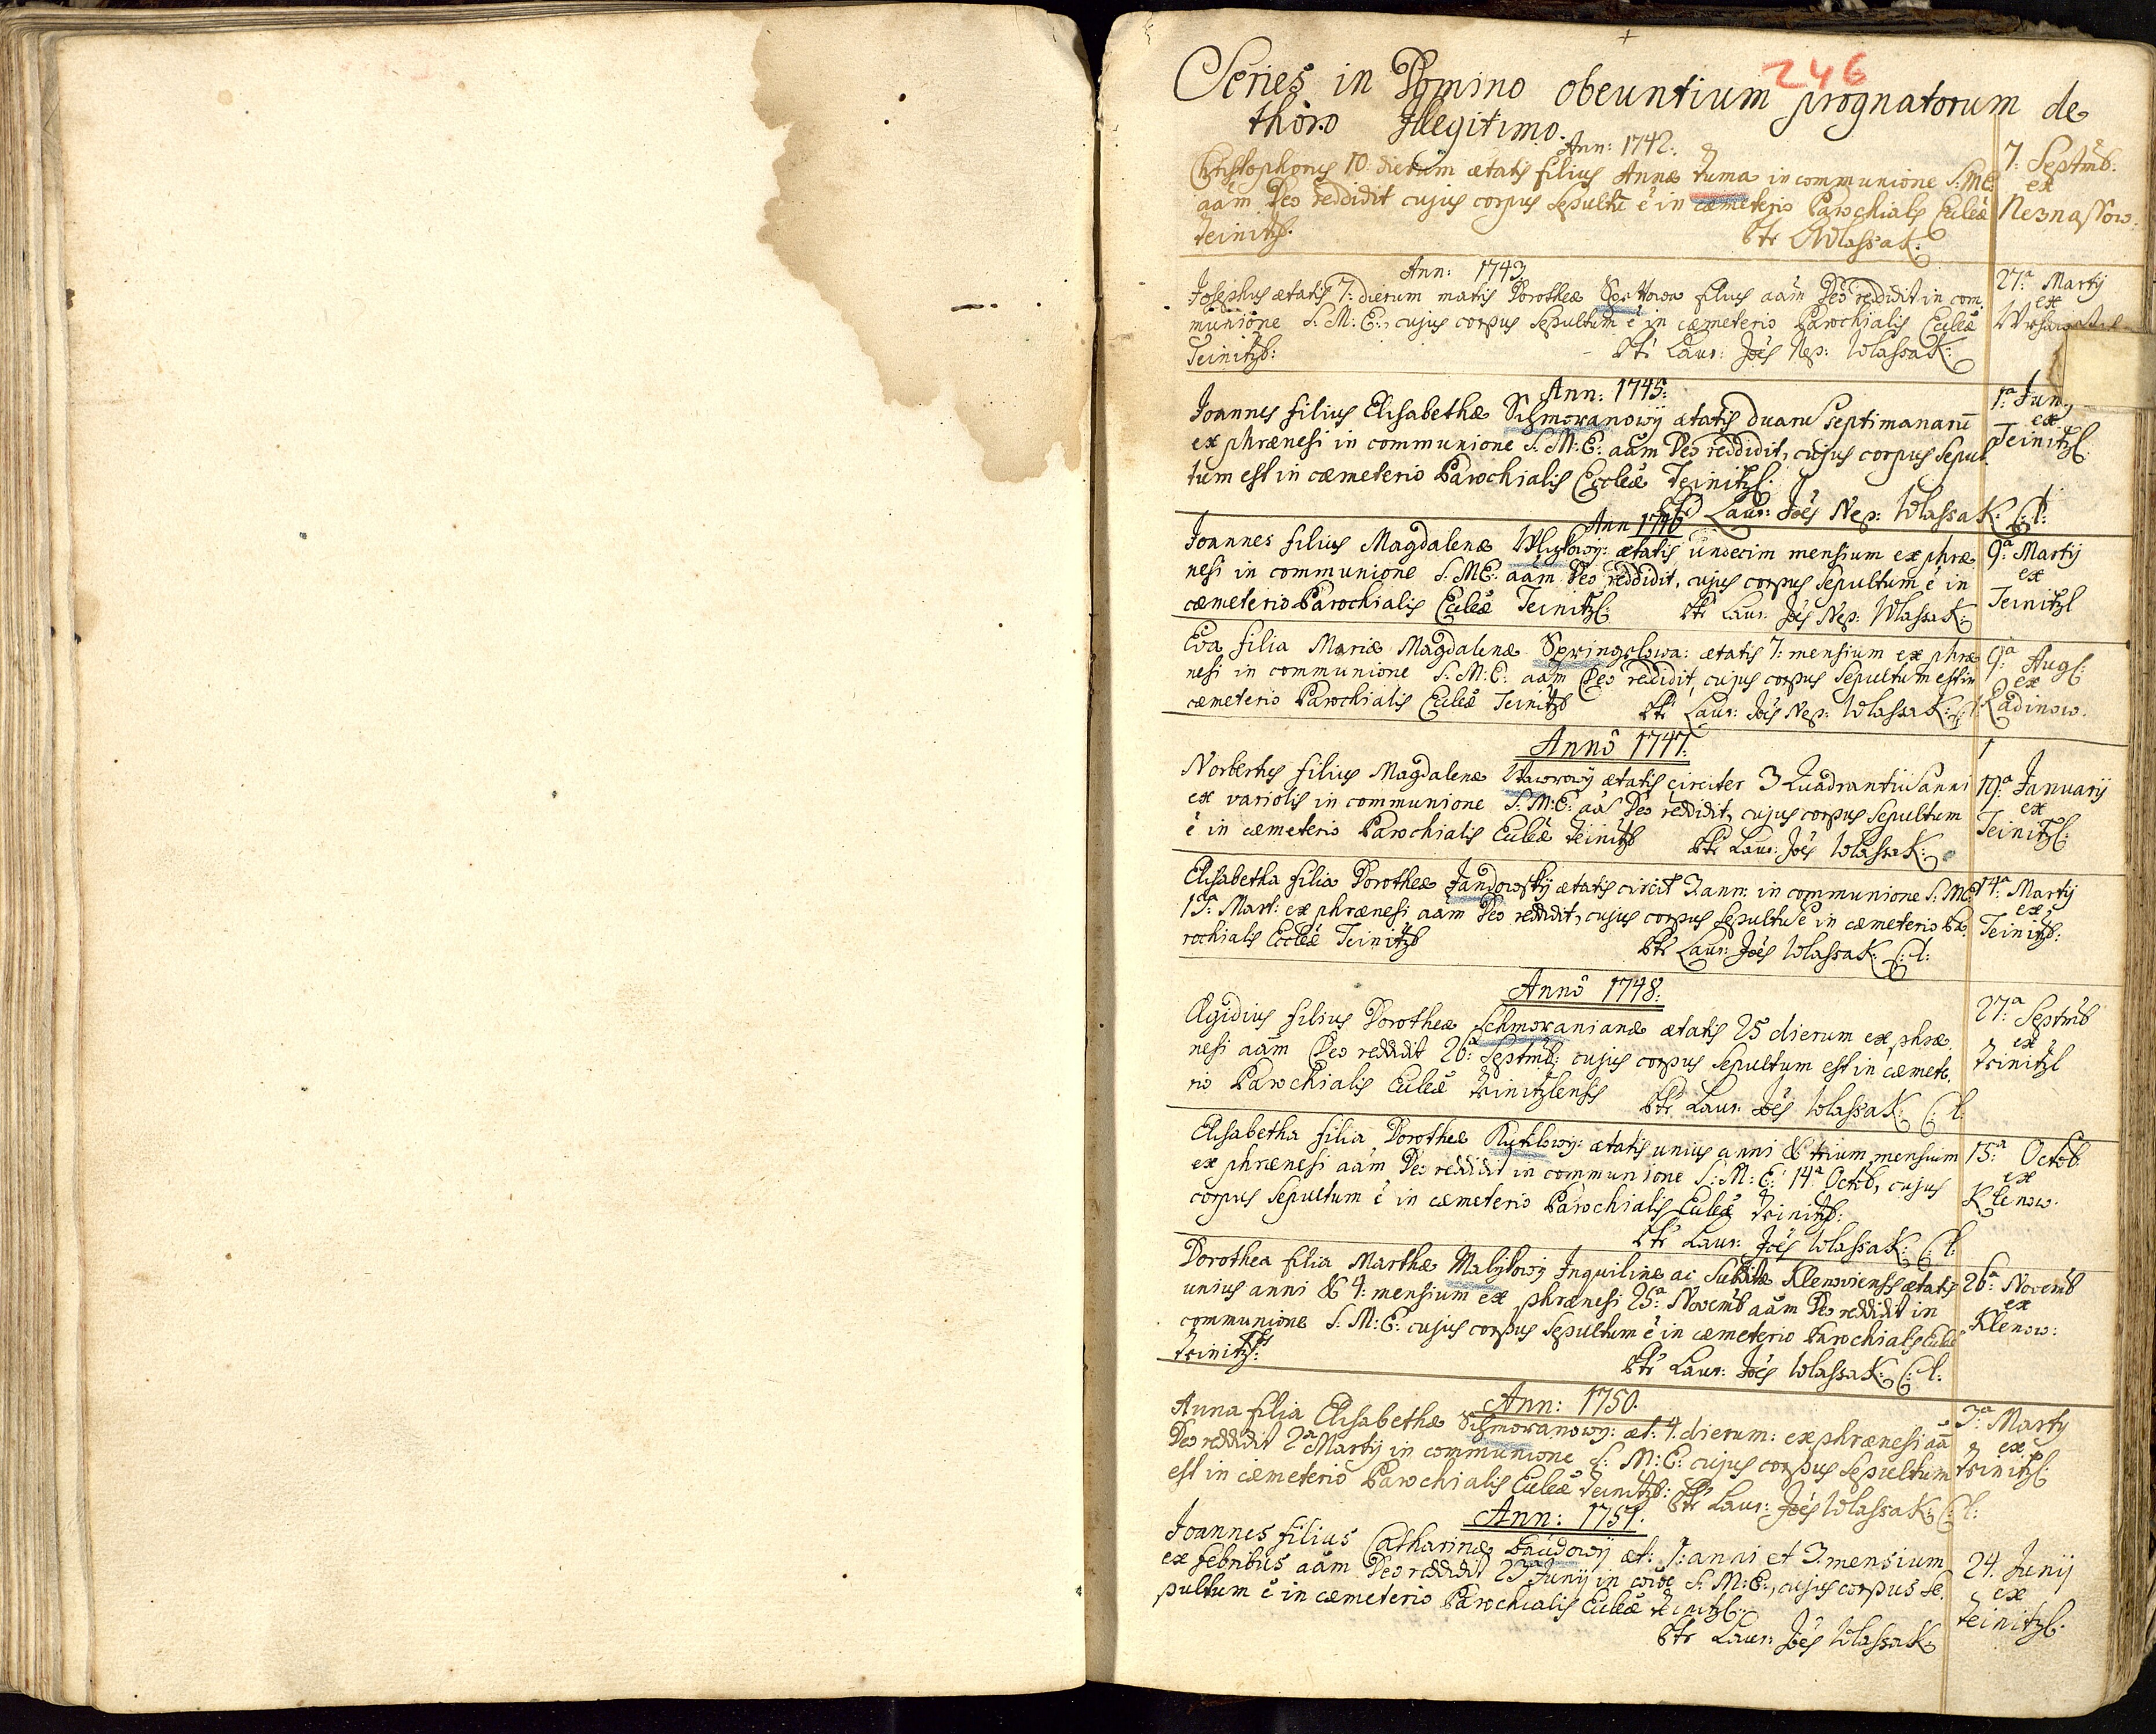 246
Series in Domino obeuntium prognatorum de
thoro Illegitimo.
Ann: 1742.
Christophorus 10 dierum ætatis filius Annæ Tuma in communione S: M E: 7: Septmb:
aam Deo reddidit cujus corpus Sepultu e in cæmeterio Parochialis Ecclæ ex
Teinitzl. Ptr Wlassak. Neznassow.
Ann: 1743
Josephus ætatis 7: dierum matris Dorotheæ filius aam Deo reddidit in com 27.a Martij
munione S. M: E:, cujus corpus Sepultum e in cæmeterio Parochialis Ecclæ ex
Teinitzl: Ptr Laur: Joes Nep: Wlassak:
Ann: 1745:
Joannes filius Elisabethæ Schmoranowij ætatis duaru Septimanaru 1.a Junij
ex phrænesi in communione S. M: E: aam Deo reddidit, cujus corpus Sepul ex
tum est in cæmeterio Parochialis Eccleæ Teinitzl: Teinitzl:
Ptr Laur: Joes Nep: Wlassak: C: l:
Ann 1746
Joannes filius Magdalenæ ætatis undecim mensium ex phræ 9.a Martij
nesi in communione S. M E: aam Deo reddidit, cujus corpus Sepultum e in ex
cæmeterio Parochialis Ecclæ Teinitzl: Ptr Laur: Joes Nep: Wlassak: Teinitzl
Eva filia Mariæ Magdalenæ Springelowa: ætatis 7: mensium ex phræ 9.a Augs:
nesi in communione S. M: E: aam Deo reddidit, cujus corpus Sepultum est in ex
cæmeterio Parochialis Ecclæ Teinitzl Ptr Laur: Joes Nep: Wlassak: C: l: Ladinow.
Anno 1747:
Norbertus filius Magdalenæ Wawrowij ætatis circiter 3 Quadrantiu anni 19.a Januarij
ex variolis in communione S: M: E: aa Deo reddidit, cujus corpus Sepultum ex
e in cæmeterio Parochialis Ecclæ Teinitzl Ptr Laur: Joes Wlassak: Teinitzl:
Elisabetha filia Dorotheæ Jandowskij ætatis circit 3. ann: in communione S: M E: 14.a Martij
13.a Mart: ex phrænesi aam Deo reddidit, cujus corpus Sepultu e in cæmeterio Pa ex
rochialis Eccleæ Teinitzl Ptr Laur: Joes Wlassak: C: l: Teinitzl:
Anno 1748:
Ægidius filius Dorotheæ Schmoranianæ ætatis 25 dierum ex phræ 27.a Septmb
nesi aam Deo reddidit 26.a Septmb: cujus corpus Sepultum est in cæmete ex
rio Parochialis Ecclæ Teinitzlensis Ptr Laur: Joes Wlassak: C: l: Teinitzl
Elisabetha filia Dorotheæ ætatis unius anni & trium mensium 15.a Octob
ex phrænesi aam Deo reddidit in communione S: M: E: 14.a Octob, cujus ex
corpus Sepultum e in cæmeterio Parochialis Ecclæ Teinitzl: Klenow.
Ptr Laur: Joes Wlassak: C: l:
Dorothea filia Marthæ Inquilinæ ac Subditæ Klenoviensis ætatis 26.a Novemb
unius anni & 4: mensium ex phrænesi 25.a Novemb aam Deo reddidit in ex
communione S. M: E: cujus corpus Sepultum e in cæmeterio Parochialis Ecclæ Klenow:
Teinitzl: Ptr Laur: Joes Wlassak: C: l:
Ann: 1750.
Anna filia Elisabethæ Schmoranowij: æt: 4. dierum: ex phrænesi aa 3.a Martij
Deo reddidit 2.a Martij in communione S: M: E: cujus corpus Sepultum ex
est in cæmeterio Parochialis Ecclæ Teinitzl: Ptr Laur: Joes Wlassak: C: l: Teinitzl:
Ann: 1751.
Joannes filius Catharinæ æt: 1: anni et 3. mensium 24. Junij
ex febribus aam Deo reddidit 23 Junij in S: M: E:, cujus corpus Se ex
pultum e in cæmeterio Parochialis Ecclæ Teinitzl: Teinitzl:
Ptr Laur: Joes Wlassak